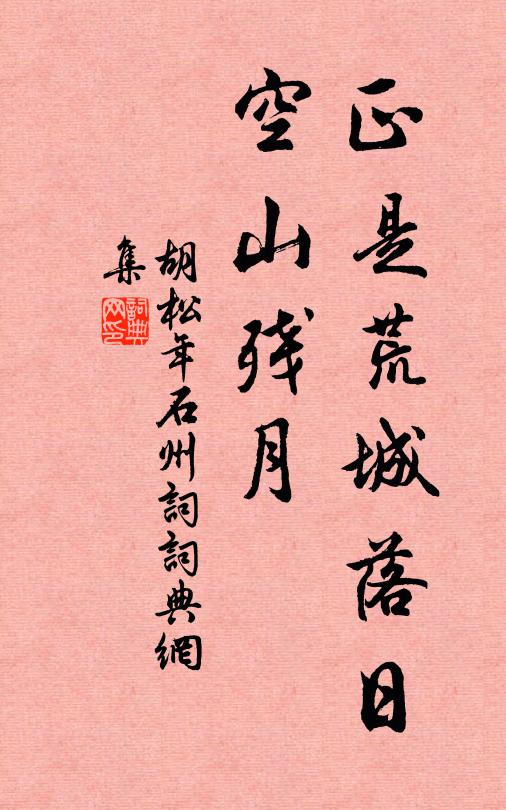 正是荒城落日
空山残月
胡松年石州詞詞典網
集
詞典網印